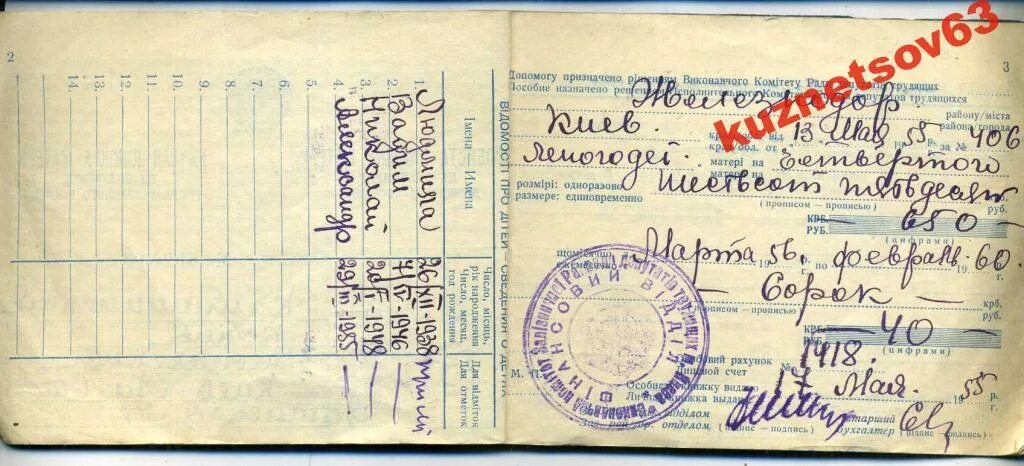 2
ВІДОМОСТІ ПРО ДІТЕЙ—СВЕДЕНИЯ О ДЕТЯХ
Імена Имена
Число, місяць, рік народження
Число, месяц, год рождения
Для відміток
Для отметок
1. Людмила 26/XII-1938
2. Вадим 4/IV-1946
3. Николай 1948
4. Александр 29/III-1955
5.
6.
7.
8.
9.
10.
11.
12.
13.
14.
kuznetsov63
3
Допомогу призначено рішенням Виконавчого Комітету Ради трудящих
Пособие назначено решением Исполнительного Комитета депутатов трудящихся
Железнодор.
району/міста
района/города
Киев. від 13 Мая 55 р. за № 406
обл. от г.
матері на Четвертого
матери на
розмірі: одноразово Шестьсот пятьдесят
размере: единовременно
(прописом — прописью)
КРБ. РУБ. — 650 —
(цифрами)
щомісячно Марта 56, по февраль 60.
ежемесячно
— Сорок —
крб.
руб.
(прописом — прописью)
КРБ. РУБ. — 40 —
(цифрами)
Особовий рахунок
Лицевой счет № 1918.
М. П.
Особисту книжку видано
Личная книжка выдана 17 Мая 1955 р.
г.
ФІНАНСОВИЙ ВІДДІЛ
Зав. рай/гор. отделом
(підпис — подпись)
старший
бухгалтер
(підпис — подпись)